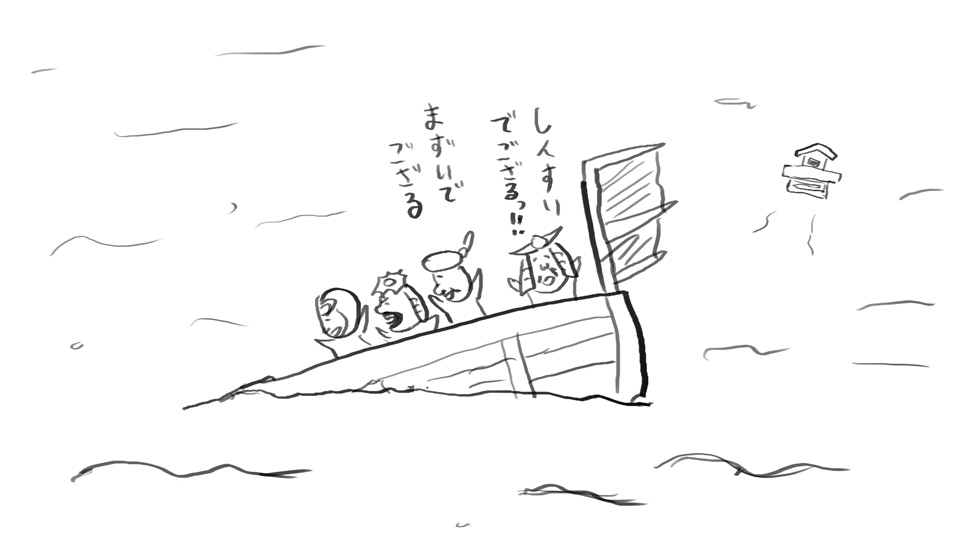 しんすい
でござるっ!!
まずいで
ござる